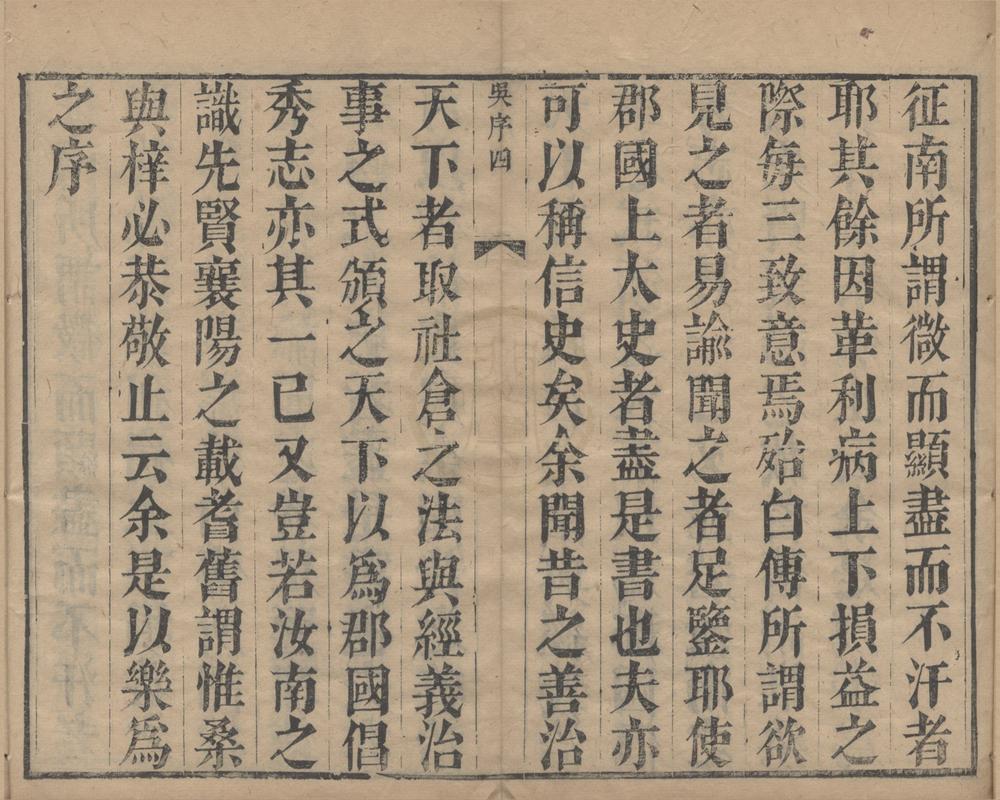 征南所謂微而顯盡而不汙者
耶其餘因革利病上下損益之
際每三致意焉殆白傳所謂欲
見之者易諭聞之者足鑒耶使
郡國上太史者盡是書也夫亦
可以稱信史矣余聞昔之善治
吳序四
天下者取社倉之法與經義治
事之式頒之天下以爲郡國倡
秀志亦其一已又豈若汝南之
識先賢襄陽之載耆舊謂惟桑
與梓必恭敬止云余是以樂爲
之序